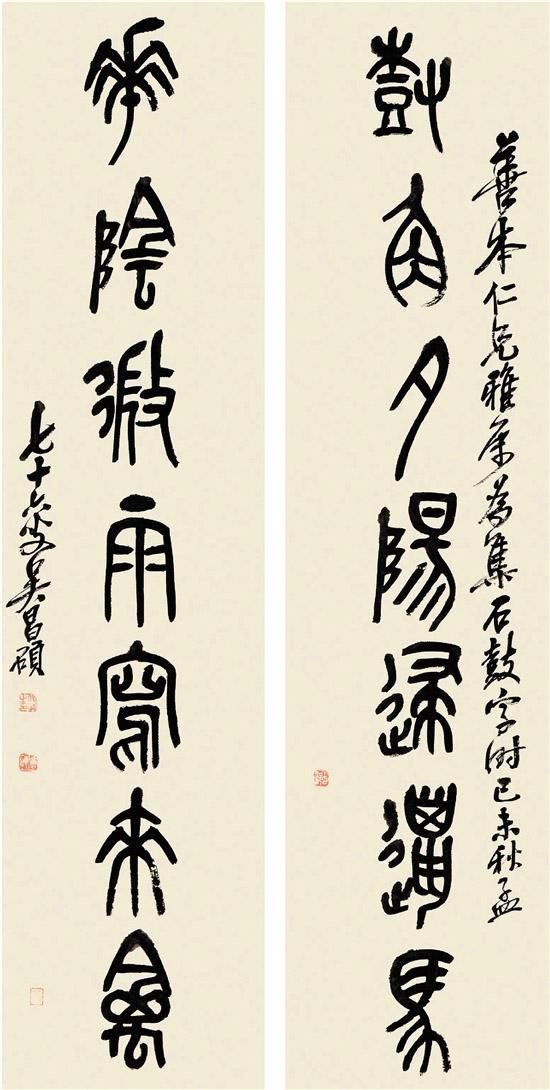 善本仁兄雅屬為集石鼓字時己未秋孟
尌角夕陽歸邋馬
華陰微雨寫來禽
七十六叟吳昌碩